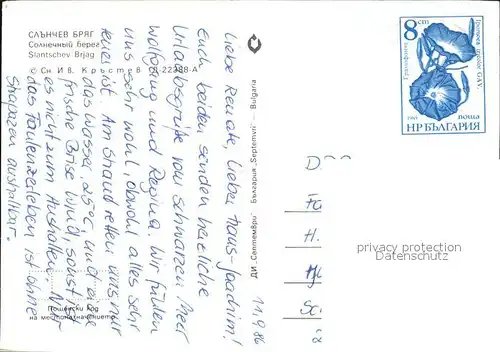 СЛЪНЧЕВ БРЯГ
Солнечный берег
Slantschev Brjag
© Сн. Ив. Кръстев Д-22388-А
Liebe Renate, lieber Hans-Joachim!
Euch beiden senden herzliche
Urlaubsgrüße vom schwarzen Meer
Wolfgang und Regina. Wir fühlen
uns sehr wohl, obwohl alles sehr
teuer ist. Am Strand retten uns nur
das Wasser, 25°C und eine
frische Brise Wind, sonst ist
es nicht zum Aushalten. Nur
das Faulenzerleben ist ohne
Strapazen aushaltbar.
11.9.86
ДИ „Септември" — България „Septemvri" — Bulgaria
Пощенски код
на местоназначението
8 cm
1985
поща
НР БЪЛГАРИЯ
privacy protection
Datenschutz